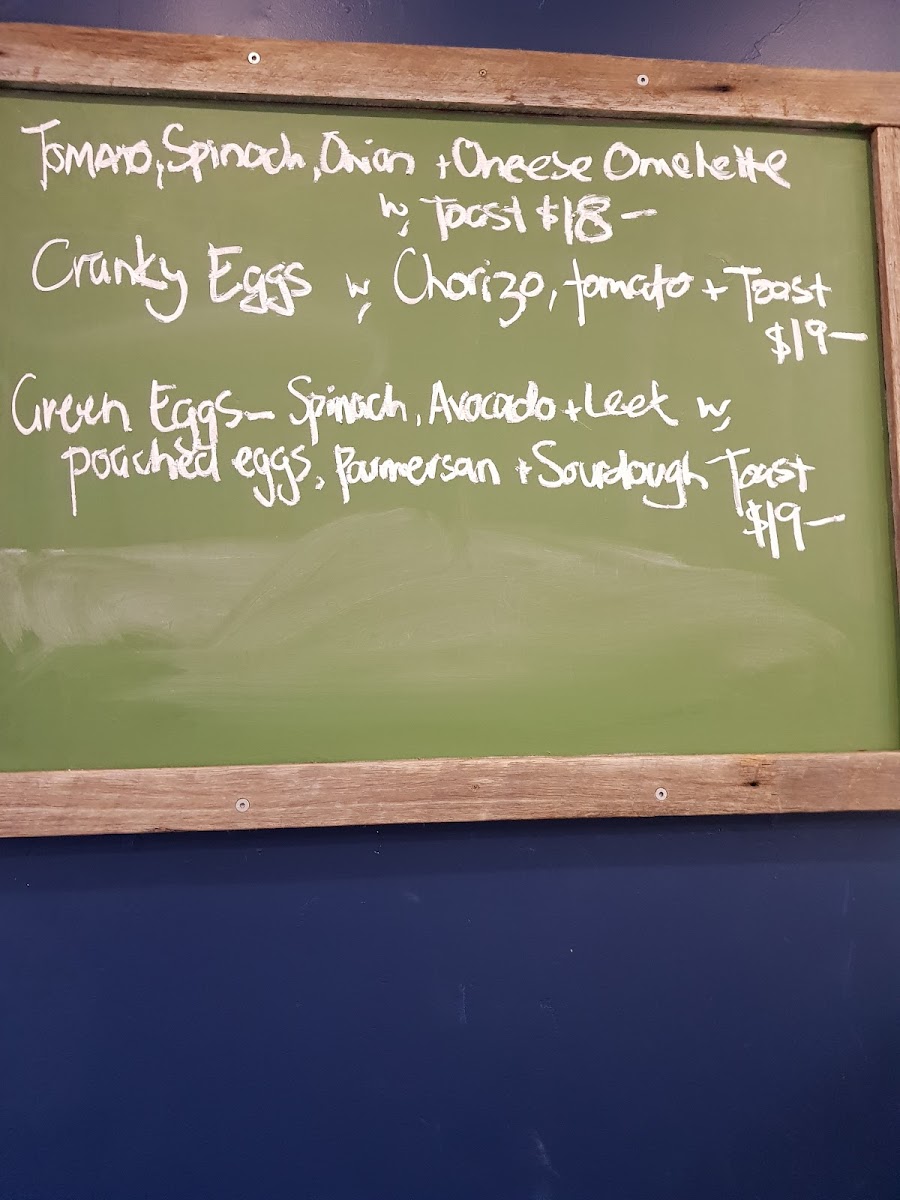 Tomato, Spinach, Onion + Cheese Omelette
w, Toast $18 –
Cranky Eggs w, Chorizo, tomato + Toast
$19 –
Green Eggs – Spinach, Avocado + Leek w,
poached eggs, Parmersan + Sourdough Toast
$19 –